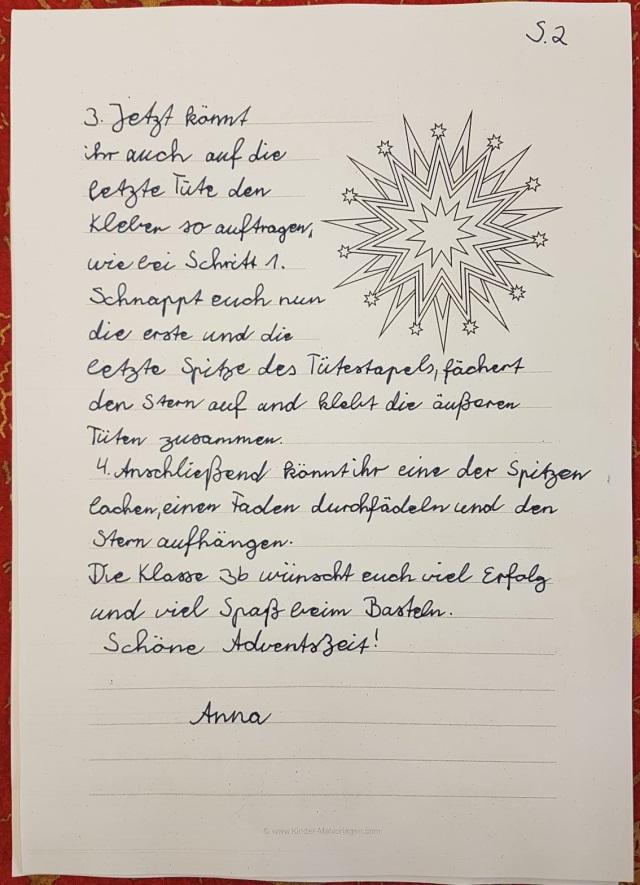 S.2
3. Jetzt könnt
ihr auch auf die
letzte Tüte den
Kleber so auftragen,
wie bei Schritt 1.
Schnappt euch nun
die erste und die
letzte Spitze des Tütestapels, fächert
den Stern auf und klebt die äußeren
Tüten zusammen.
4. Anschließend könnt ihr eine der Spitzen
lochen, einen Faden durchfädeln und den
Stern aufhängen.
Die Klasse 3b wünscht euch viel Erfolg
und viel Spaß beim Basteln.
Schöne Adventszeit!
Anna
© www.Kinder-Malvorlagen.com